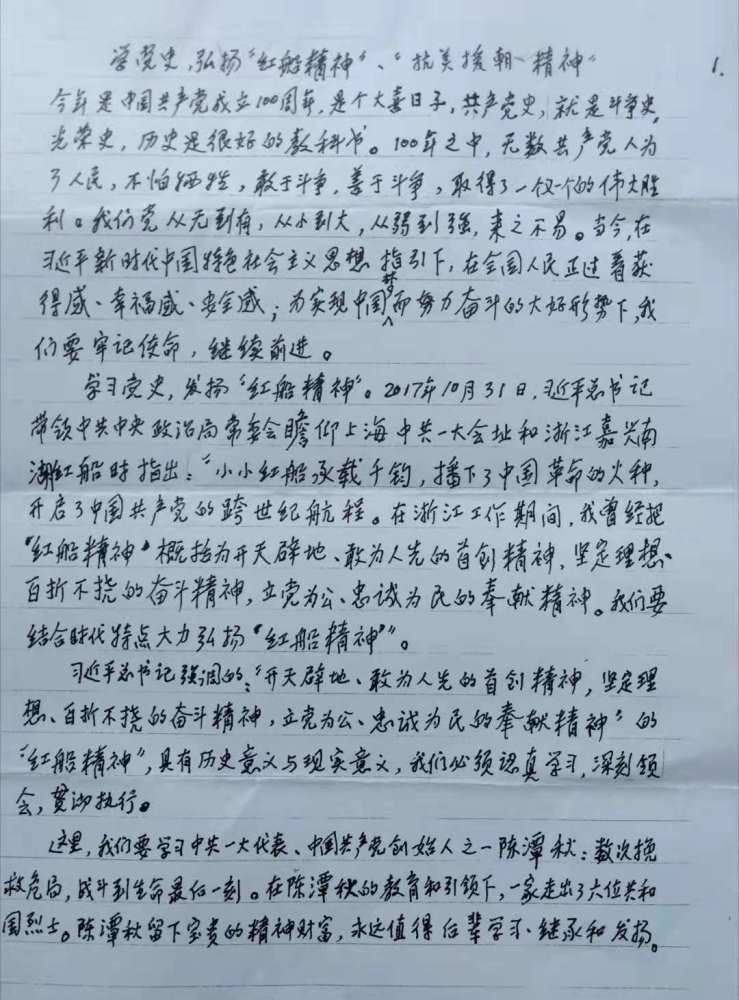 学党史,弘扬“红船精神”、“抗美援朝精神”
1.
今年是中国共产党成立100周年,是个大喜日子,共产党史,就是斗争史,
光荣史,历史是很好的教科书。100年之中,无数共产党人为
了人民,不怕牺牲,敢于斗争,善于斗争,取得了一仅一个的伟大胜
利。我们党从无到有,从小到大,从弱到强,来之不易。当今,在
习近平新时代中国特色社会主义思想指引下,在全国人民正过着获
得感、幸福感、安全感;为实现中国梦而努力奋斗的大好形势下,我
们要牢记使命,继续前进。
学习党史,发扬“红船精神”。2017年10月31日,习近平总书记
带领中共中央政治局常委会瞻仰上海中共一大会址和浙江嘉兴南
湖红船时指出:“小小红船,承载千钧,播下了中国革命的火种,
开启了中国共产党的跨世纪航程。在浙江工作期间,我曾经把
“红船精神”概括为开天辟地、敢为人先的首创精神,坚定理想、
百折不挠的奋斗精神,立党为公、忠诚为民的奉献精神。我们要
结合时代特点大力弘扬“红船精神””。
习近平总书记强调的:“开天辟地、敢为人先的首创精神,坚定理
想、百折不挠的奋斗精神,立党为公、忠诚为民的奉献精神”的
“红船精神”,具有历史意义与现实意义,我们必须認真学习,深刻领
会,贯彻执行。
这里,我们要学习中共一大代表、中国共产党创始人之一陈潭秋:数次挽
救危局,战斗到生命最后一刻。在陈潭秋的教育和引领下,一家走出了六位共和
国烈士。陈潭秋留下宝贵的精神财富,永远值得后辈学习、继承和发扬。